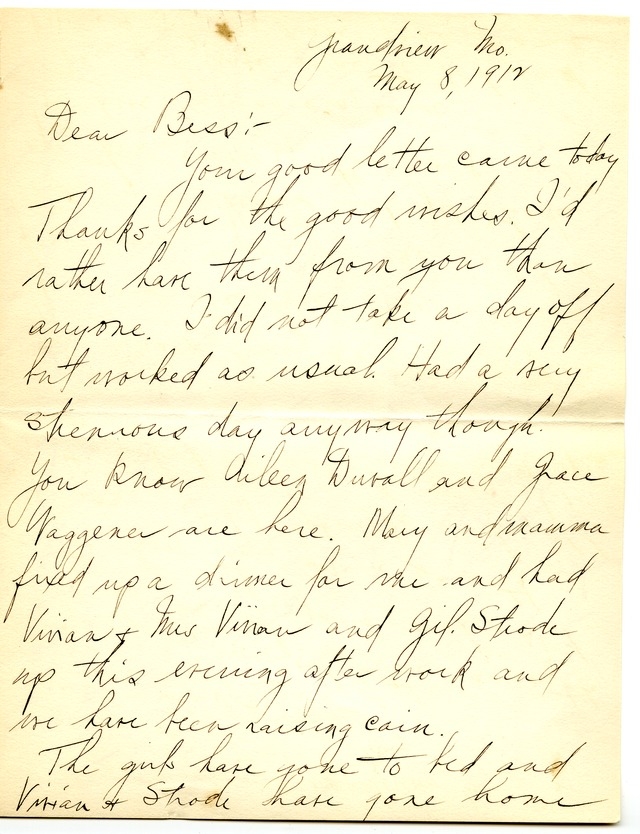 Grandview Mo.
May 8, 1912
Dear Bess:-
Your good letter came today
Thanks for the good wishes. I'd
rather have them from you than
anyone. I did not take a day off
but worked as usual. Had a very
strenuous day anyway though.
You know Aileen Duvall and Grace
Waggener are here. Mary and mamma
fixed up a dinner for me and had
Vivian & Mrs Vivian and Gil. Strode
up this evening after work and
we have been raising cain.
The girls have gone to bed and
Vivian & Strode have gone home